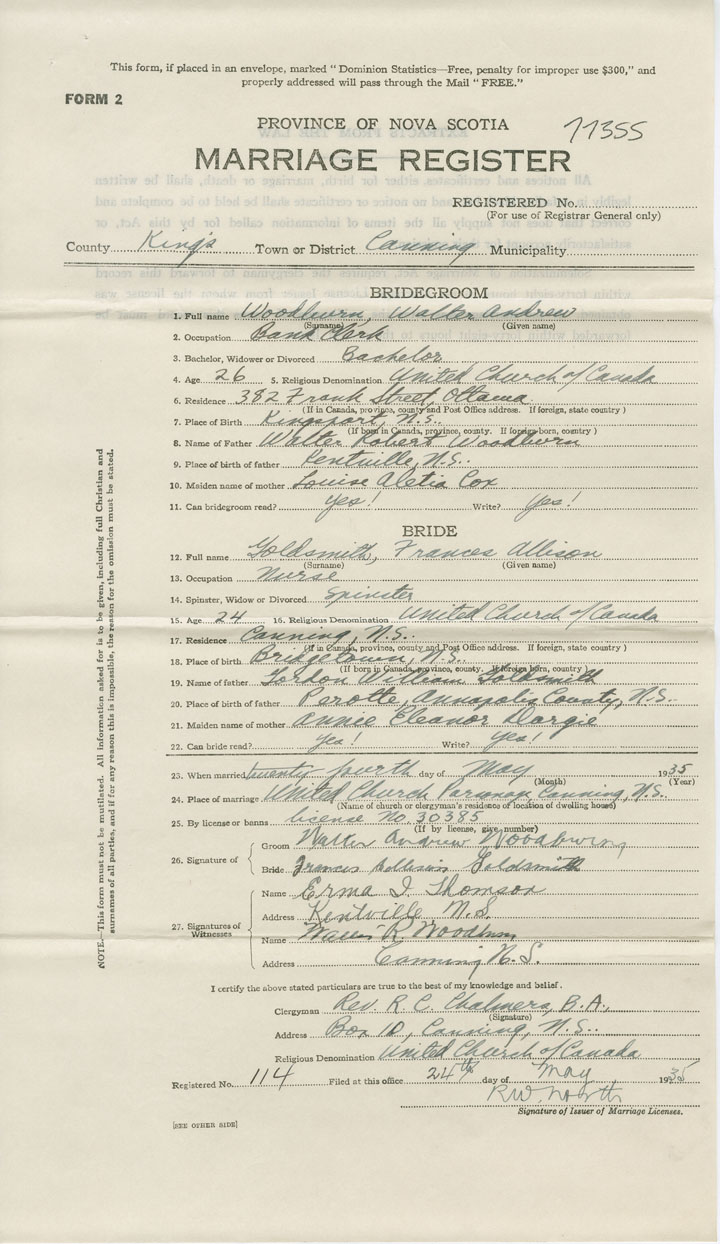 This form, if placed in an envelope, marked " Dominion Statistics—Free, penalty for improper use $300," and
properly addressed will pass through the Mail " FREE."
FORM 2
PROVINCE OF NOVA SCOTIA 11355
MARRIAGE REGISTER
REGISTERED No.
(For use of Registrar General only)
County King's Town or District Canning Municipality
BRIDEGROOM
1. Full name Woodburn, Walter Andrew
(Surname) (Given name)
2. Occupation Bank Clerk
3. Bachelor, Widower or Divorced Bachelor
4. Age 26 5. Religious Denomination United Church of Canada
6. Residence 382 Frank Street, Ottawa
(If in Canada, province, county and Post Office address. If foreign, state country )
7. Place of Birth Kingsport, N.S.
(If born in Canada, province, county. If foreign born, country )
8. Name of Father Walter Robert Woodburn
9. Place of birth of father Kentville, N.S.
10. Maiden name of mother Louise Aletia Cox
11. Can bridegroom read? yes! Write? Yes!
BRIDE
12. Full name Goldsmith, Frances Allison
(Surname) (Given name)
13. Occupation Nurse
14. Spinster, Widow or Divorced Spinster
15. Age 24 16. Religious Denomination United Church of Canada
17. Residence Canning, N.S.
(If in Canada, province, county and Post Office address. If foreign, state country )
18. Place of birth Bridgetown, N.S.
(If born in Canada, province, county. If foreign born, country )
19. Name of father Gordon William Goldsmith
20. Place of birth of father Perotte, Annapolis County, N.S.
21. Maiden name of mother Annie Eleanor Dargie
22. Can bride read? yes! Write? Yes!
23. When married twenty fourth day of May 1935
(Month) (Year)
24. Place of marriage United Church Parsonage, Canning, N.S.
(Name of church or clergyman's residence of location of dwelling house)
25. By license or banns license No. 30385
(If by license, give number)
26. Signature of
Groom Walter Andrew Woodburn
Bride Frances Allison Goldsmith
27. Signatures of Witnesses
Name Erma I. Thomson
Address Kentville N.S.
Name Walter R. Woodburn
Address Canning N.S.
I certify the above stated particulars are true to the best of my knowledge and belief.
Clergyman Rev. R. C. Chalmers, B.A.,
(Signature)
Address Box 10, Canning, N.S.
Religious Denomination United Church of Canada
Registered No. 114 Filed at this office 24th day of May 1935
R.W. North
Signature of Issuer of Marriage Licenses.
[SEE OTHER SIDE]
NOTE.—This form must not be mutilated. All information asked for is to be given, including full Christian and
surnames of all parties, and if for any reason this is impossible, the reason for the omission must be stated.